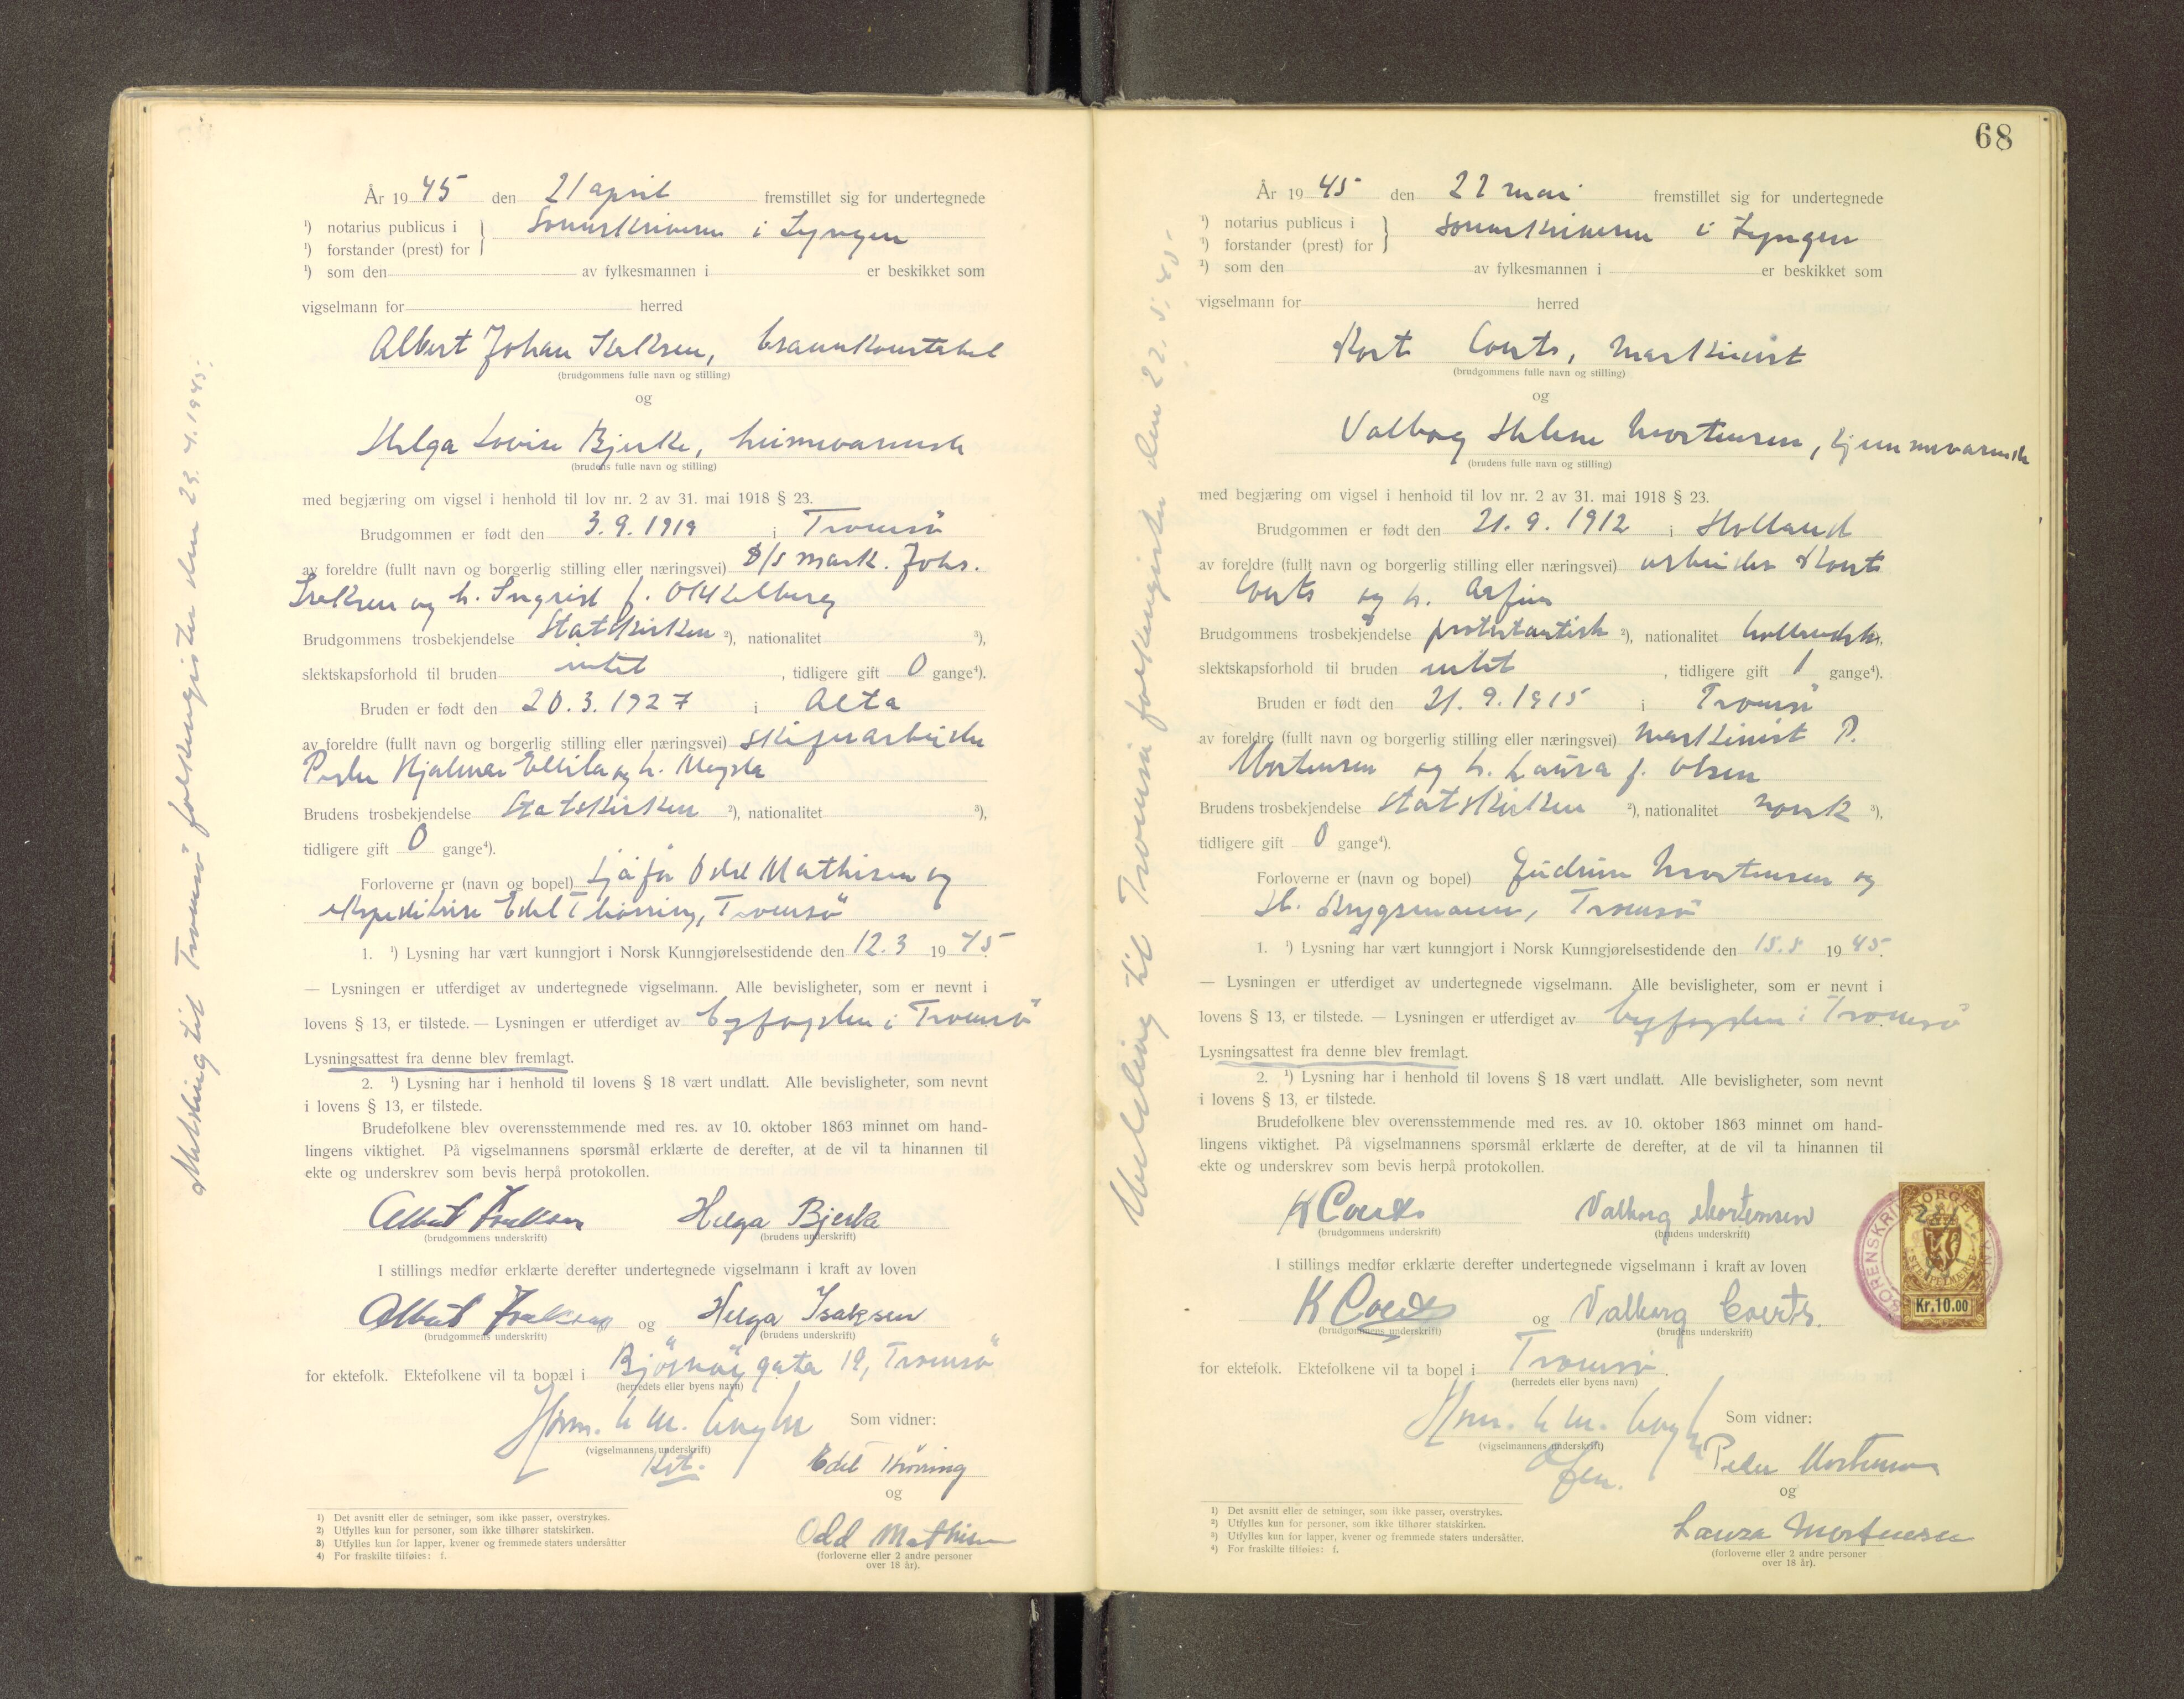 År 1945 den 21 april fremstillet sig for undertegnede
¹) notarius publicus i
¹) forstander (prest) for } Sorenskriveren i Lyngen
¹) som den av fylkesmannen i er beskikket som
vigselmann for herred
Albert Johan Isaksen, brannkonstabel
(brudgommens fulle navn og stilling)
og
Helga Lovise Bjerke, heimeværende
(brudens fulle navn og stilling)
med begjæring om vigsel i henhold til lov nr. 2 av 31. mai 1918 § 23.
Brudgommen er født den 3.9.1919 i Tromsö
av foreldre (fullt navn og borgerlig stilling eller næringsvei) D/S mask. Johs.
Isaksen og h. Ingrid f. Okkelberg
Brudgommens trosbekjendelse Statskirken ²), nationalitet ³),
slektskapsforhold til bruden intet , tidligere gift 0 gange⁴).
Bruden er født den 20.3.1927 i Alta
av foreldre (fullt navn og borgerlig stilling eller næringsvei) skiferarbeider
Peder Hjalmar og h. Magda
Brudens trosbekjendelse Statskirken ²), nationalitet ³),
tidligere gift 0 gange⁴).
Forloverne er (navn og bopel) sjåfør Odd Mathisen og
ekspeditrise Edel Thørring, Tromsö
1. ¹) Lysning har vært kunngjort i Norsk Kunngjørelsestidende den 12.3 1945.
— Lysningen er utferdiget av undertegnede vigselmann. Alle bevisligheter, som er nevnt i
lovens § 13, er tilstede. — Lysningen er utferdiget av byfogden i Tromsö
Lysningsattest fra denne blev fremlagt.
2. ¹) Lysning har i henhold til lovens § 18 vært undlatt. Alle bevisligheter, som nevnt
i lovens § 13, er tilstede.
Brudefolkene blev overensstemmende med res. av 10. oktober 1863 minnet om hand-
lingens viktighet. På vigselmannens spørsmål erklærte de derefter, at de vil ta hinannen til
ekte og underskrev som bevis herpå protokollen.
Albert Isaksen Helga Bjerke
(brudgommens underskrift) (brudens underskrift)
I stillings medfør erklærte derefter undertegnede vigselmann i kraft av loven
Albert Isaksen og Helga Isaksen
(brudgommens underskrift) (brudens underskrift)
for ektefolk. Ektefolkene vil ta bopæl i Björnöygata 19, Tromsö
(herredets eller byens navn)
Som vidner:
(vigselmannens underskrift)
Edel Thörring
og
Odd Mathisen
(forloverne eller 2 andre personer
over 18 år).
1) Det avsnitt eller de setninger, som ikke passer, overstrykes.
2) Utfylles kun for personer, som ikke tilhører statskirken.
3) Utfylles kun for lapper, kvener og fremmede staters undersåtter
4) For fraskilte tilføies: f.
Melding til Tromsö folkeregister den 23.4.1945.
68
År 1945 den 22 mai fremstillet sig for undertegnede
¹) notarius publicus i
¹) forstander (prest) for } Sorenskriveren i Lyngen
¹) som den av fylkesmannen i er beskikket som
vigselmann for herred
Kort Coerts, maskinist
(brudgommens fulle navn og stilling)
og
Valborg Helene Mortensen, hjemmeværende
(brudens fulle navn og stilling)
med begjæring om vigsel i henhold til lov nr. 2 av 31. mai 1918 § 23.
Brudgommen er født den 21.9.1912 i Holland
av foreldre (fullt navn og borgerlig stilling eller næringsvei) arbeider Kort
Coerts og h.
Brudgommens trosbekjendelse protestantisk ²), nationalitet hollandsk ³),
slektskapsforhold til bruden intet , tidligere gift 1 gange⁴).
Bruden er født den 21.9.1915 i Tromsö
av foreldre (fullt navn og borgerlig stilling eller næringsvei) maskinist P.
Mortensen og h. Laura f. Olsen
Brudens trosbekjendelse statskirken ²), nationalitet norsk ³),
tidligere gift 0 gange⁴).
Forloverne er (navn og bopel) Gudrun Mortensen og
H. Brygsmann, Tromsö
1. ¹) Lysning har vært kunngjort i Norsk Kunngjørelsestidende den 15.5 1945.
— Lysningen er utferdiget av undertegnede vigselmann. Alle bevisligheter, som er nevnt i
lovens § 13, er tilstede. — Lysningen er utferdiget av byfogden i Tromsö
Lysningsattest fra denne blev fremlagt.
2. ¹) Lysning har i henhold til lovens § 18 vært undlatt. Alle bevisligheter, som nevnt
i lovens § 13, er tilstede.
Brudefolkene blev overensstemmende med res. av 10. oktober 1863 minnet om hand-
lingens viktighet. På vigselmannens spørsmål erklærte de derefter, at de vil ta hinannen til
ekte og underskrev som bevis herpå protokollen.
K Coerts Valborg Mortensen
(brudgommens underskrift) (brudens underskrift)
I stillings medfør erklærte derefter undertegnede vigselmann i kraft av loven
K Coerts og Valborg Coerts.
(brudgommens underskrift) (brudens underskrift)
for ektefolk. Ektefolkene vil ta bopel i Tromsö.
(herredets eller byens navn)
Som vidner:
(vigselmannens underskrift)
Peder Mortensen
og
Laura Mortensen
(forloverne eller 2 andre personer
over 18 år).
1) Det avsnitt eller de setninger, som ikke passer, overstrykes.
2) Utfylles kun for personer, som ikke tilhører statskirken.
3) Utfylles kun for lapper, kvener og fremmede staters undersåtter.
4) For fraskilte tilføies: f.
Melding til Tromsö folkeregister den 22.5.45.
NORGE
STEMPELMERKE
Kr.10.00